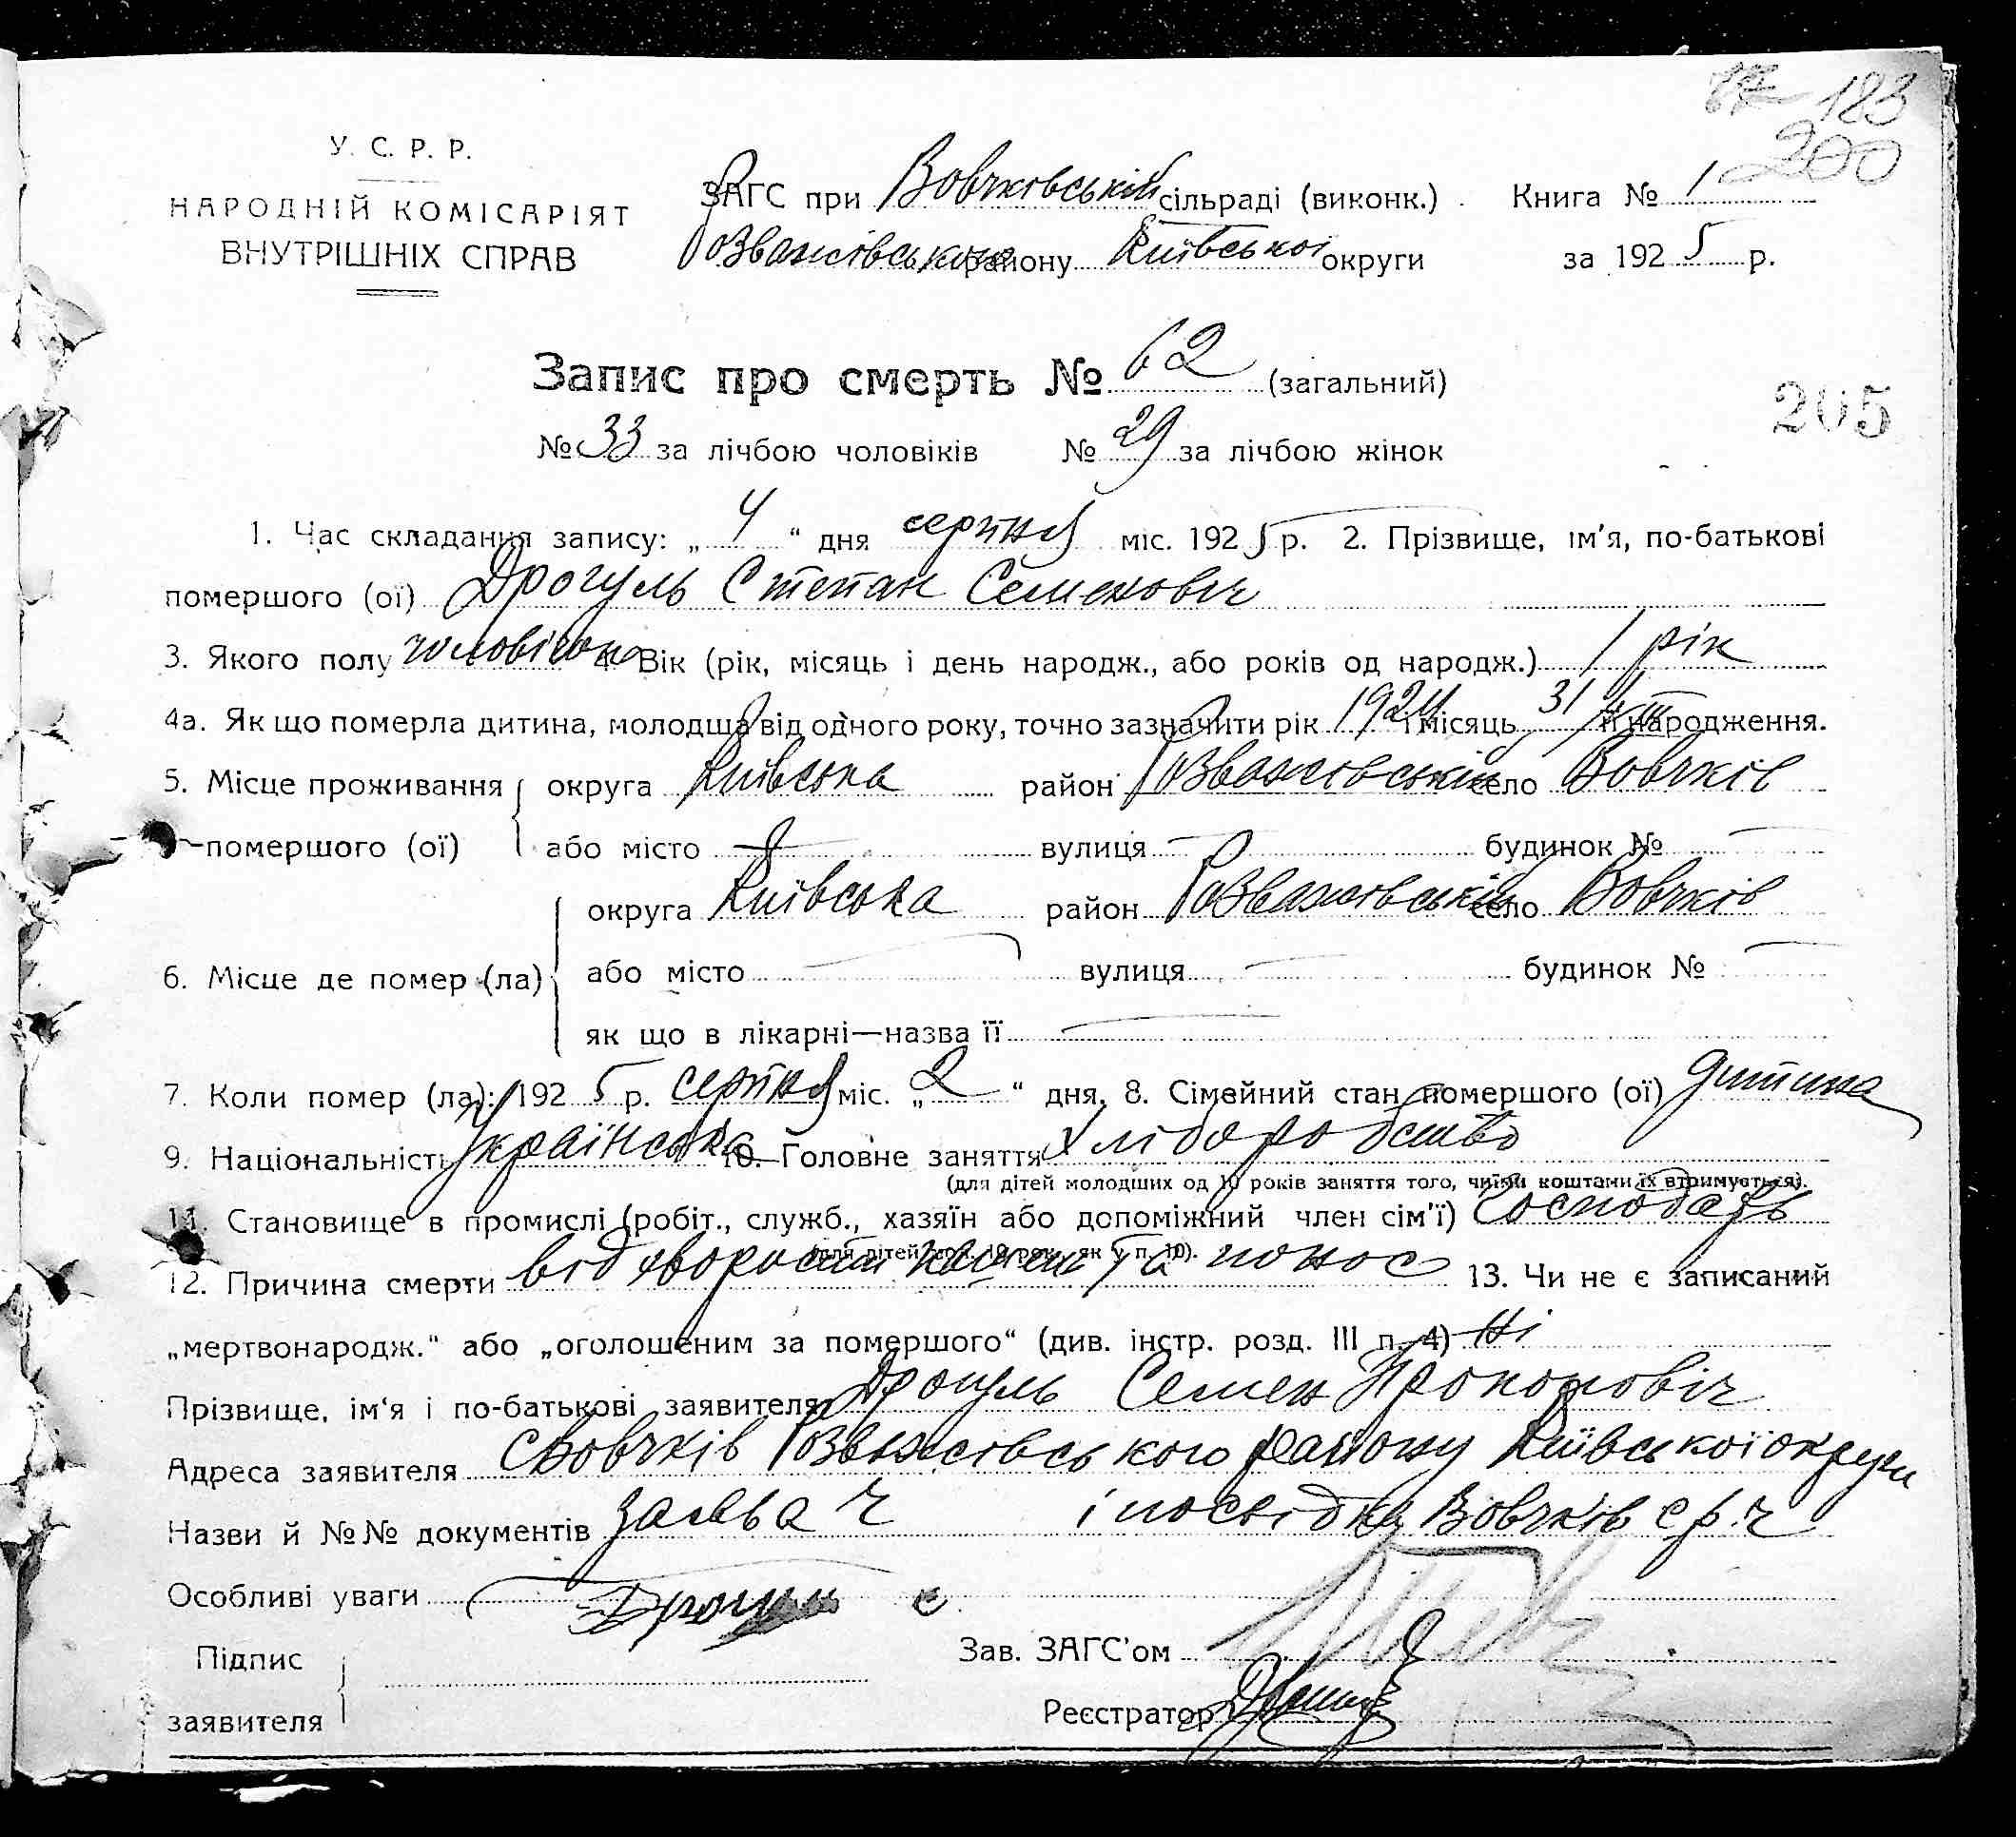 183
200
У. С. Р. Р.
НАРОДНІЙ КОМІСАРІЯТ
ВНУТРІШНІХ СПРАВ
ЗАГС при Вовчківській сільраді (виконк.) Книга № 1
Розважівського району Київської округи за 1925 р.
Запис про смерть № 62 (загальний)
205
№ 33 за лічбою чоловіків № 29 за лічбою жінок
1. Час складання запису: „4“ дня серпня міс. 1925 р. 2. Прізвище, ім'я, по-батькові
помершого (ої) Дрогуль Степан Семенович
3. Якого полу чоловічого 4. Вік (рік, місяць і день народж., або років од народж.) 1 рік
4а. Як що померла дитина, молодша від одного року, точно зазначити рік 1924 і місяць 31/XII її народження.
5. Місце проживання округа Київська район Розважівський село Вовчків
помершого (ої) або місто — вулиця — будинок № —
округа Київська район Розважівський село Вовчків
6. Місце де помер (ла) або місто — вулиця — будинок № —
як що в лікарні—назва її —
7. Коли помер (ла): 1925 р. серпня міс. „2“ дня, 8. Сімейний стан помершого (ої) дитина
9. Національність Українська 10. Головне заняття Хліборобство
(для дітей молодших од 10 років заняття того, чиїми коштами їх втримується).
11. Становище в промислі (робіт., служб., хазяїн або допоміжний член сім'ї) Господарь
(для дітей мол. 10 рок., як у п. 10).
12. Причина смерти від хворости кашель та понос 13. Чи не є записаний
„мертвонародж.“ або „оголошеним за помершого“ (див. інстр. розд. III п. 4) Ні
Прізвище, ім'я і по-батькові заявителя Дрогуль Семен Прокопович
Адреса заявителя с Вовчків Розважівського району Київської округи
Назви й №№ документів заява ч і посвідка Вовчків с р. ч
Особливі уваги —
Підпис Зав. ЗАГС'ом
заявителя Реєстратор